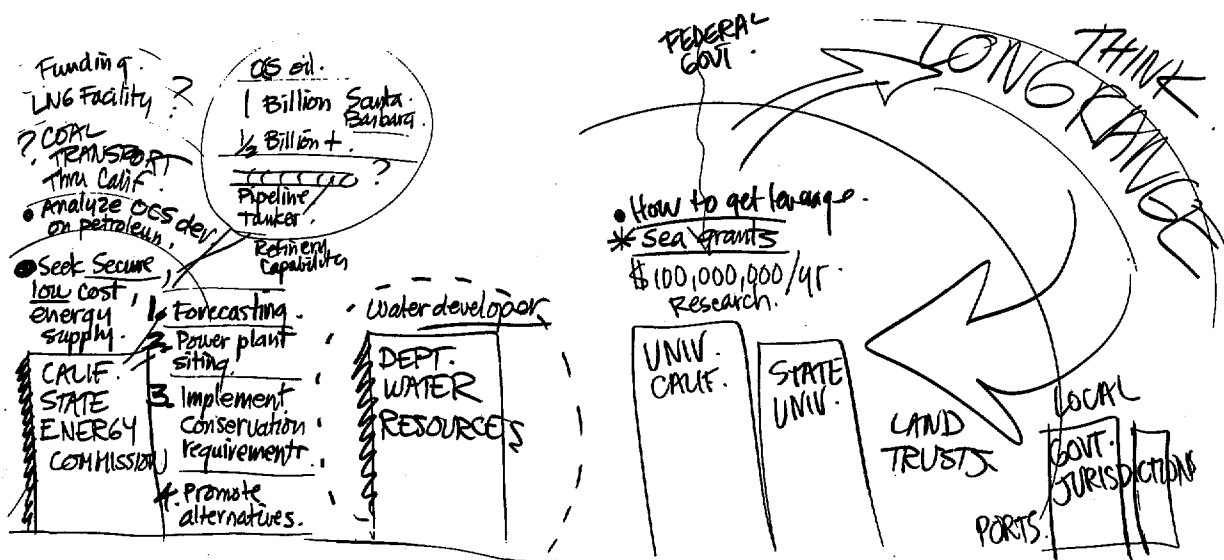 Funding.
LNG Facility ?
? COAL
TRANSPORT
Thru Calif.
• Analyze OCS dev
on petroleum,
• Seek Secure,
low cost,
energy
supply.
CALIF.
STATE
ENERGY
COMMISSION
OCS oil.
1 Billion Santa
Barbara.
1/2 Billion +.
?
Pipeline
tanker.
Refinery
Capabilities
1. Forecasting.
2. Power plant
siting.
3. Implement
conservation
requirements.
4. Promote
alternatives.
Water developer
DEPT.
WATER
RESOURCES
FEDERAL
GOVT.
• How to get leverage.
* Sea grants
$100,000,000/yr.
Research.
UNIV.
CALIF.
STATE
UNIV.
THINK
LONG RANGE
LAND
TRUSTS
LOCAL
GOVT.
JURISDICTIONS
PORTS.